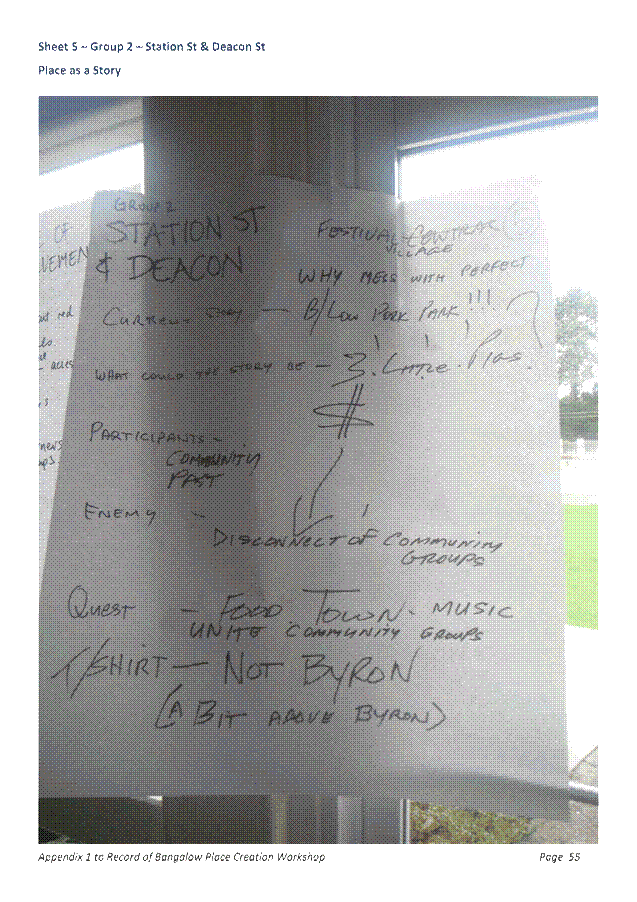 Sheet 5 ~ Group 2 ~ Station St & Deacon St
Place as a Story
GROUP 2
STATION ST
& DEACON
FESTIVAL CENTRAL
VILLAGE
WHY MESS WITH PERFECT
CURRENT STORY — B/LOW PORK PARK!!!
WHAT COULD THE STORY BE – 3 LITTLE PIGS.
$
PARTICIPANTS –
COMMUNITY
PAST
ENEMY –
DISCONNECT OF COMMUNITY
GROUPS
QUEST – FOOD TOWN - MUSIC
UNITE COMMUNITY GROUPS
T/SHIRT — NOT BYRON
(A BIT ABOVE BYRON)
OF
red
acres
news
Appendix 1 to Record of Bangalow Place Creation Workshop
Page 55